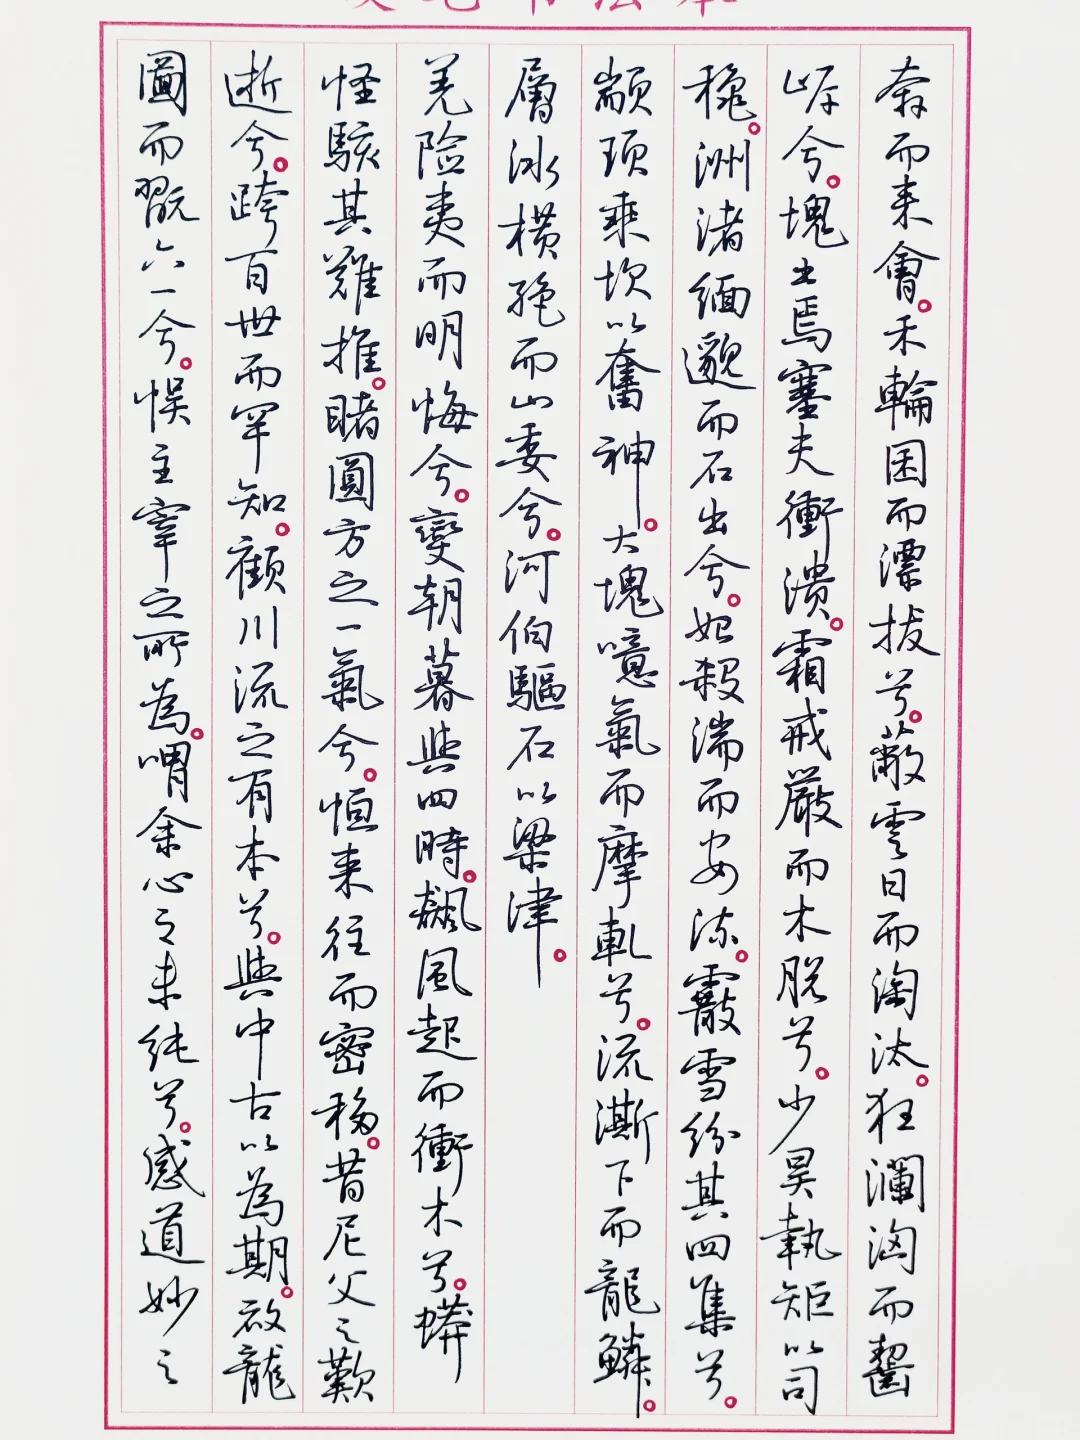 奔而来會。禾輪囷而漂拔兮。蔽雲日而淘汰。狂瀾洶而齧
岸兮。塊土焉塞夫衝潰。霜戒嚴而木脱兮。少昊執矩以司
穐。洲渚緬邈而石出兮。始殺湍而安流。霰雪紛其四集兮。
顓頊乘坎以奮神。大塊噫氣而摩軋兮。流澌下而龍鱗。
層冰横絶而山委兮。河伯驅石以梁津。
羌險夷而明晦兮。變朝暮與四時。飆風起而衝木兮。蟒
怪駭其難推。睹圓方之一氣兮。恒来往而密移。昔尼父之歎
逝兮。跨百世而罕知。顧川流之有本兮。與中古以為期。放龍
圖而翫六一兮。悮主宰之所為。喟余心之未純兮。感道妙之